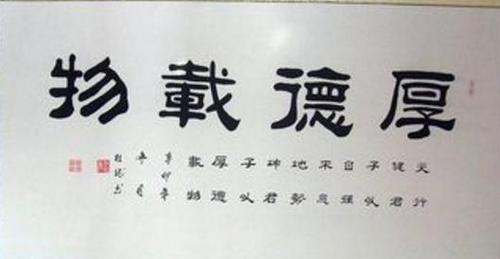 厚德載物
天行
健君
子以
自強
不息
地勢
坤君
子以
厚德
載物
辛卯年